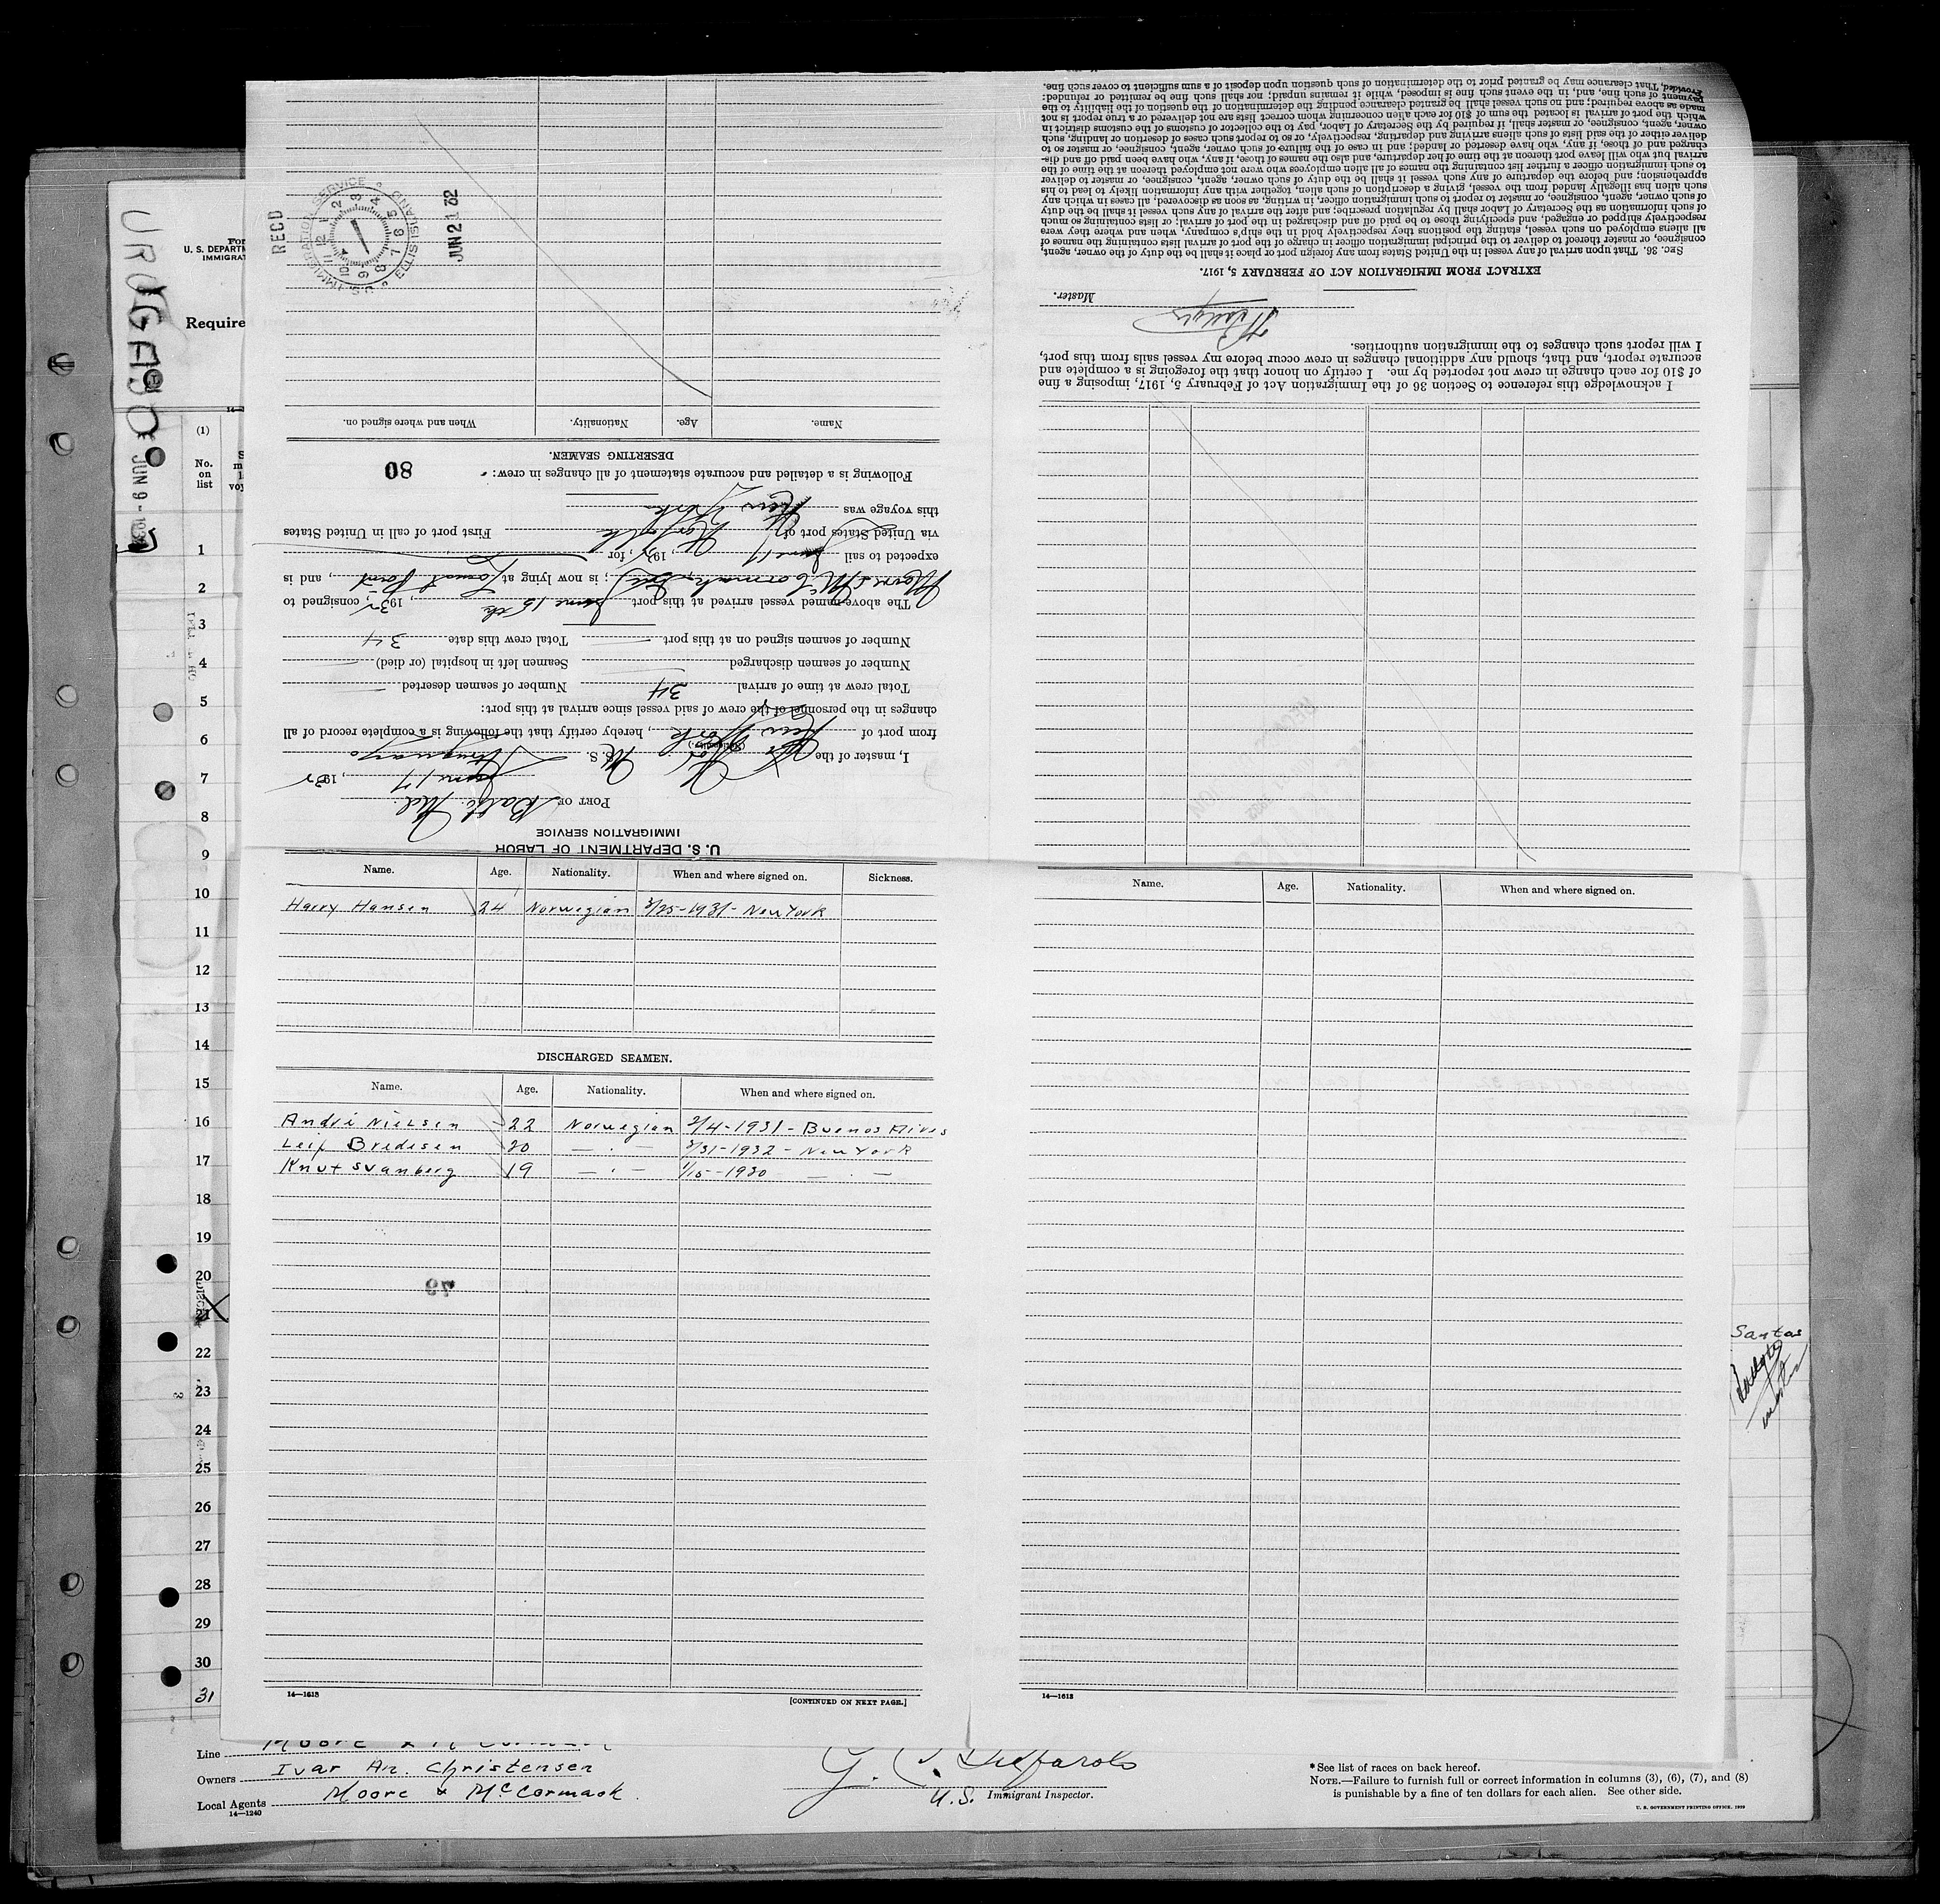 URUGAYO
JUN 9 - 193
U. S. DEPARTM
IMMIGRAT
Require
(1)
No.
on
list
1
2
3
4
5
6
7
8
9
10
11
12
13
14
15
16
17
18
19
20
21
22
23
24
25
26
27
28
29
30
31
U. S. DEPARTMENT OF LABOR
IMMIGRATION SERVICE
PORT OF Balto Md
June 17, 1932
I, master of the M. S. Uruguayo
from port of New York, hereby certify that the following is a complete record of all
changes in the personnel of the crew of said vessel since arrival at this port:
Total crew at time of arrival 34 Number of seamen deserted
Number of seamen discharged Seamen left in hospital (or died)
Number of seamen signed on at this port Total crew this date 34
The above-named vessel arrived at this port June 15th, 1932, consigned to
Moore & McCormack ; is now lying at Locust Point, and is
expected to sail June 17, 193 , for
via United States port of Norfolk First port of call in United States
this voyage was New York
Following is a detailed and accurate statement of all changes in crew:
80
DESERTING SEAMEN.
Name. Age. Nationality. When and where signed on.
RECD
JUN 21 32
U.S. IMMIGRATION SERVICE ELLIS ISLAND
I acknowledge this reference to Section 36 of the Immigration Act of February 5, 1917, imposing a fine
of $10 for each change in crew not reported by me. I certify on honor that the foregoing is a complete and
accurate report, and that, should any additional changes in crew occur before my vessel sails from this port,
I will report such changes to the immigration authorities.
Master.
EXTRACT FROM IMMIGRATION ACT OF FEBRUARY 5, 1917.
SEC. 36. That upon arrival of any vessel in the United States from any foreign port or place it shall be the duty of the owner, agent,
consignee, or master thereof to deliver to the principal immigration officer in charge of the port of arrival lists containing the names of
all aliens employed on such vessel, stating the positions they respectively hold in the ship's company, when and where they were
respectively shipped or engaged, and specifying those to be paid off and discharged in the port of arrival; or lists containing so much
of such information as the Secretary of Labor shall by regulation prescribe; and after the arrival of any such vessel it shall be the duty
of such owner, agent, consignee, or master to report to such immigration officer, in writing, as soon as discovered, all cases in which any
such alien has illegally landed from the vessel, giving a description of such alien, together with any information likely to lead to his
apprehension; and before the departure of any such vessel it shall be the duty of such owner, agent, consignee, or master to deliver
to such immigration officer a further list containing the names of all alien employees who were not employed thereon at the time of the
arrival but who will leave port thereon at the time of her departure, and also the names of those, if any, who have been paid off and dis-
charged and of those, if any, who have deserted or landed; and in case of the failure of such owner, agent, consignee, or master so to
deliver either of the said lists of such aliens arriving and departing, respectively, or so to report such cases of desertion or landing, such
owner, agent, consignee, or master shall, if required by the Secretary of Labor, pay to the collector of customs of the customs district in
which the port of arrival is located the sum of $10 for each alien concerning whom correct lists are not delivered or a true report is not
made as above required; and no such vessel shall be granted clearance pending the determination of the question of the liability to the
payment of such fine, and, in the event such fine is imposed, while it remains unpaid; nor shall such fine be remitted or refunded:
Provided, That clearance may be granted prior to the determination of such question upon deposit of a sum sufficient to cover such fine.
Name. Age. Nationality. When and where signed on. Sickness.
Harry Hansen 24 Norwegian 3/25-1931- New York
DISCHARGED SEAMEN.
Name. Age. Nationality. When and where signed on.
André Nielsen 22 Norwegian 2/4-1931- Buenos Aires
Leif Bredesen 20 — " — 3/31-1932 - New York
Knut Svanberg 19 — " — 1/15-1930 — " —
14—1613
[CONTINUED ON NEXT PAGE.]
Name. Age. Nationality. When and where signed on.
14—1613
Santos
Line Moore & McCormack
Owners Ivar An. Christensen
Local Agents Moore & McCormack.
14—1240
U.S. Immigrant Inspector.
*See list of races on back hereof.
NOTE.—Failure to furnish full or correct information in columns (3), (6), (7), and (8)
is punishable by a fine of ten dollars for each alien. See other side.
U. S. GOVERNMENT PRINTING OFFICE. 1929